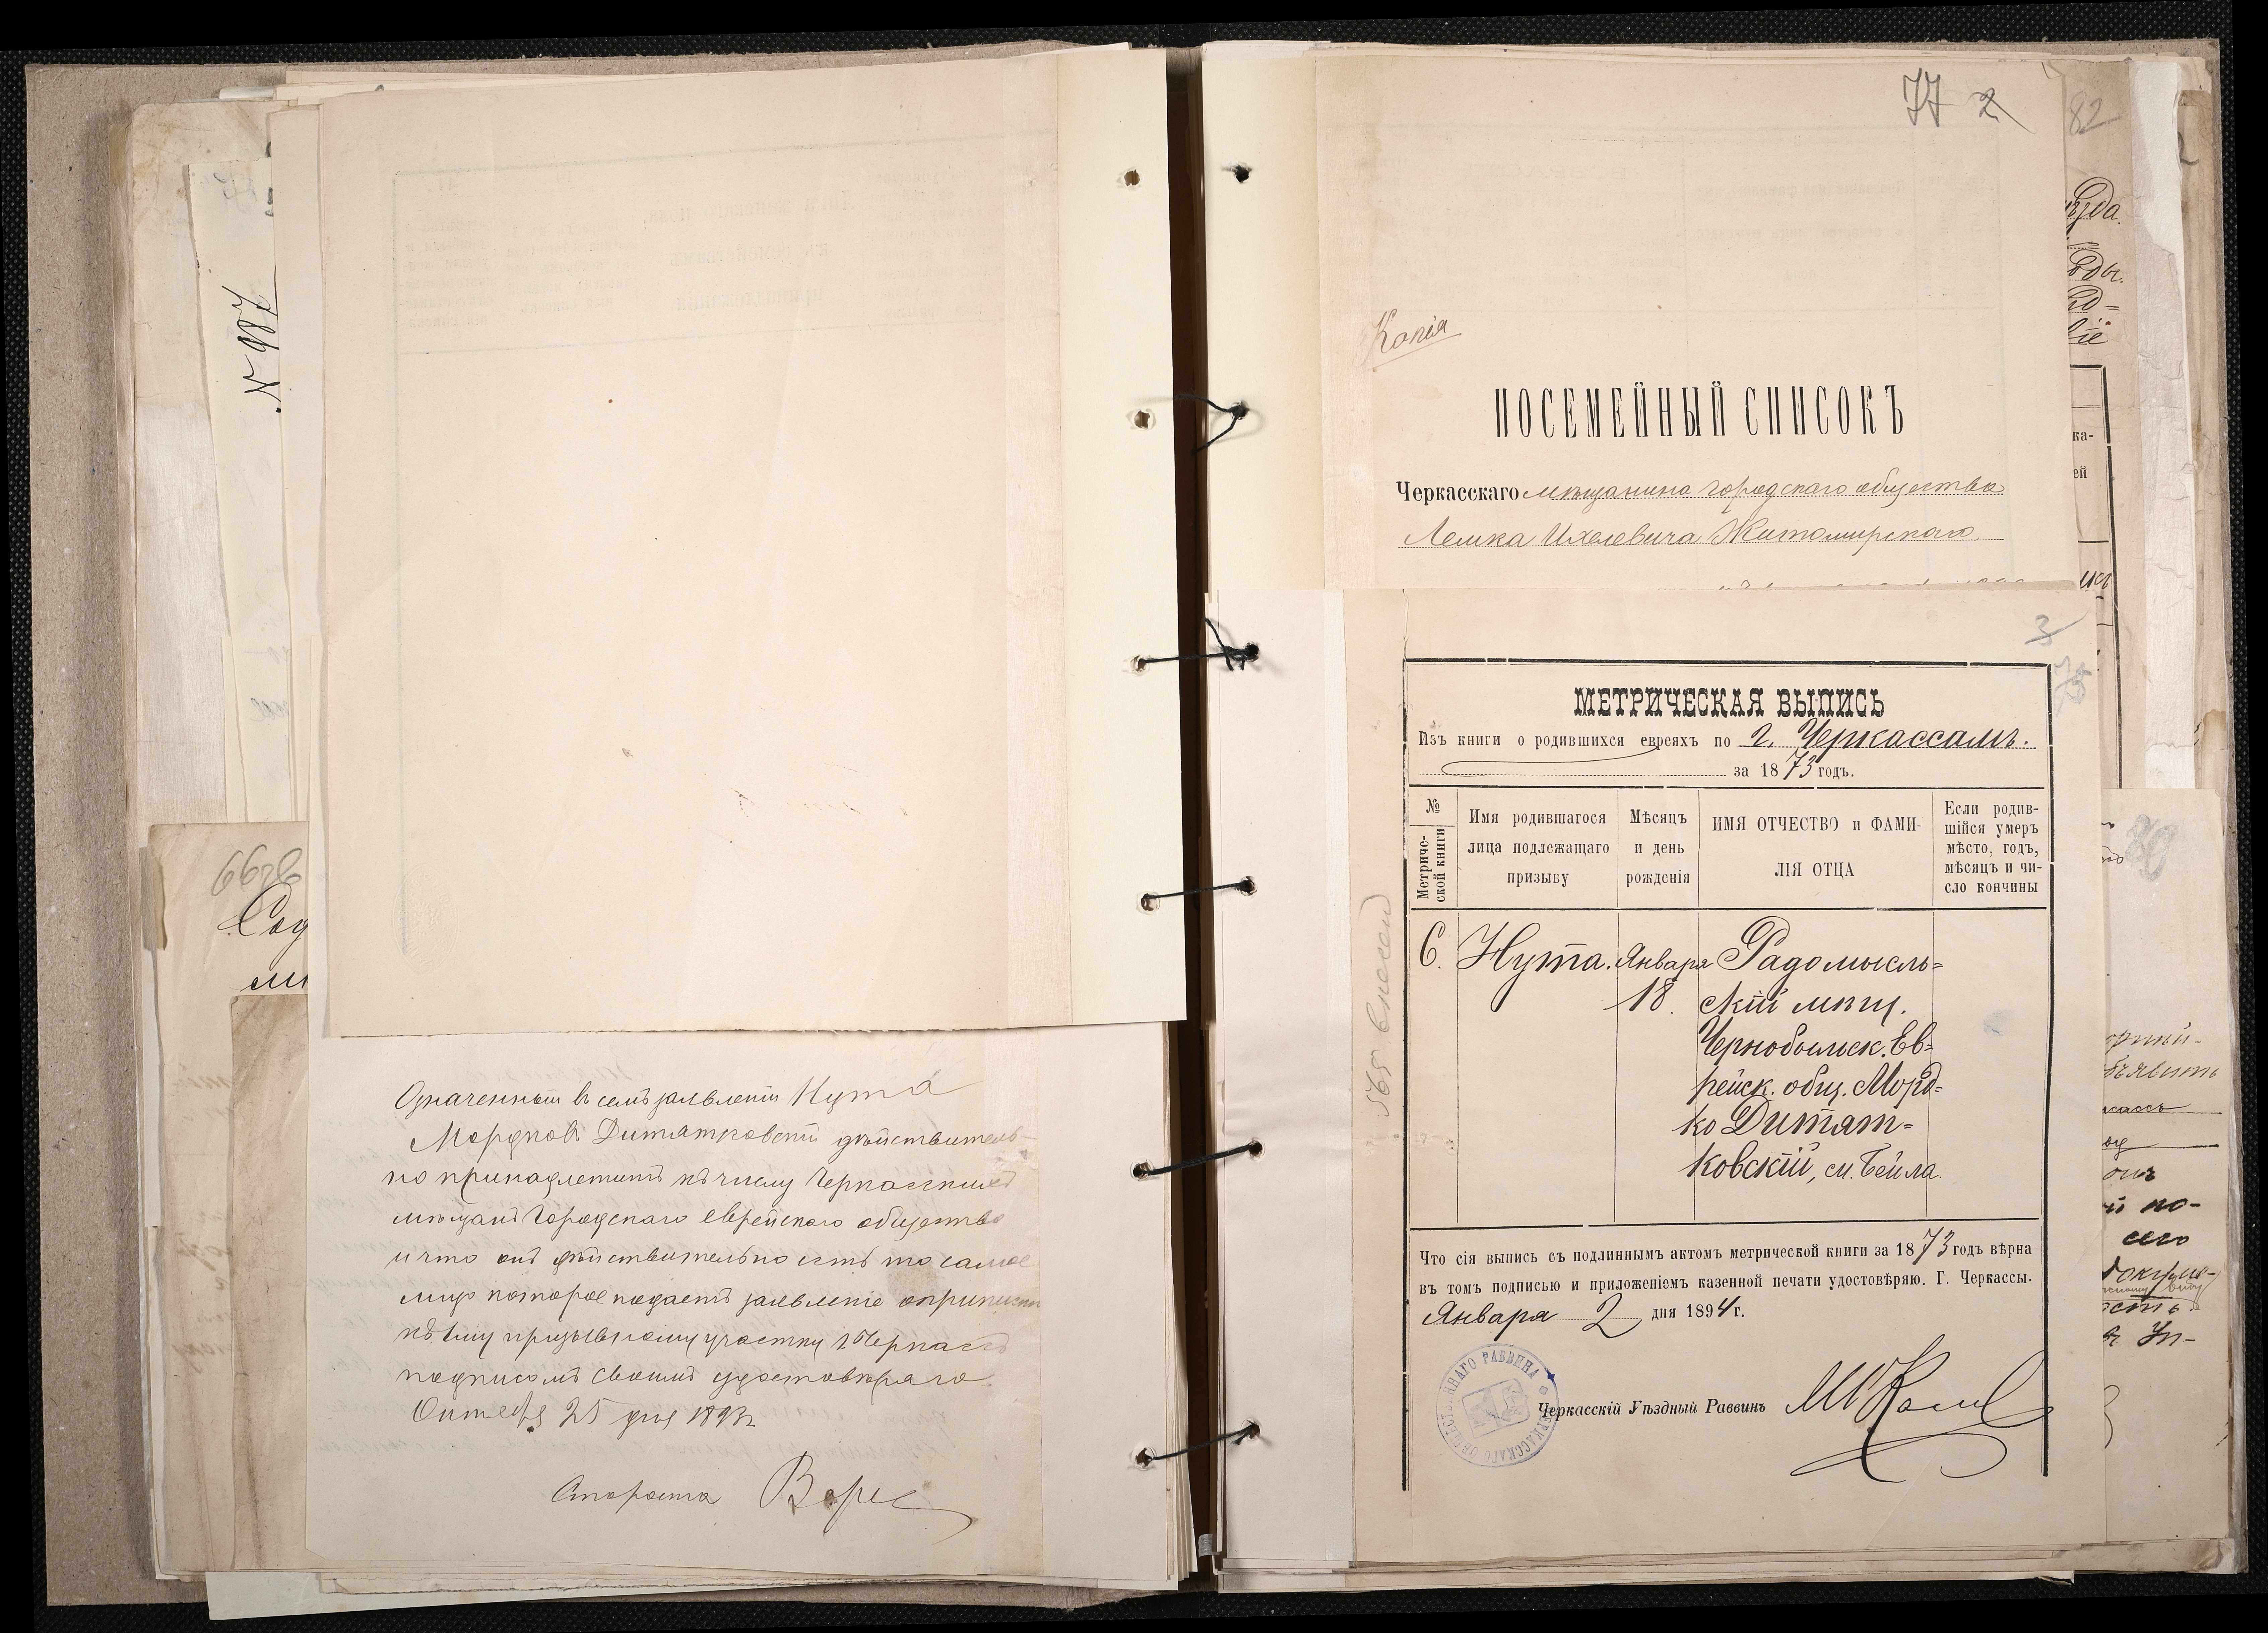 N 987
Означенный въ семъ заявленіи Нута
Мордковъ Дитятковскій дѣйствитель-
но принадлежитъ къ числу Черкасскихъ
мѣщанъ Городскаго Еврейскаго общества
и что онъ дѣйствительно есть то самое
лицо которое подаетъ заявленіе о припискѣ
къ 1му призывному участку г. Черкассъ
подписомъ своимъ удостовѣряю
Октября 25 дня 1893 г.
Староста
77 2
Копія
ПОСЕМЕЙНЫЙ СПИСОКЪ
Черкасскаго мѣщанина городскаго общества
Лешка Ихелевича Житомирскаго
82
3
МЕТРИЧЕСКАЯ ВЫПИСЬ
Изъ книги о родившихся евреяхъ по г. Черкассамъ.
за 1873 годъ.
№ Метриче-ской книги
Имя родившагося лица подлежащаго призыву
Мѣсяцъ и день рожденія
ИМЯ ОТЧЕСТВО и ФАМИ-ЛІЯ ОТЦА
Если родив-шійся умеръ мѣсто, годъ, мѣсяцъ и чи-сло кончины
6. Нута. Января Радомысль=
18. скій мѣщ.
Чернобыльск. Ев=
рейск. общ. Морд=
ко Дитят=
ковскій, м. Бейла.
Что сія выпись съ подлиннымъ актомъ метрической книги за 1873 годъ вѣрна
въ томъ подписью и приложеніемъ казенной печати удостовѣряю. Г. Черкассы.
Января 2 дня 1894 г.
Черкасскій Уѣздный Раввинъ